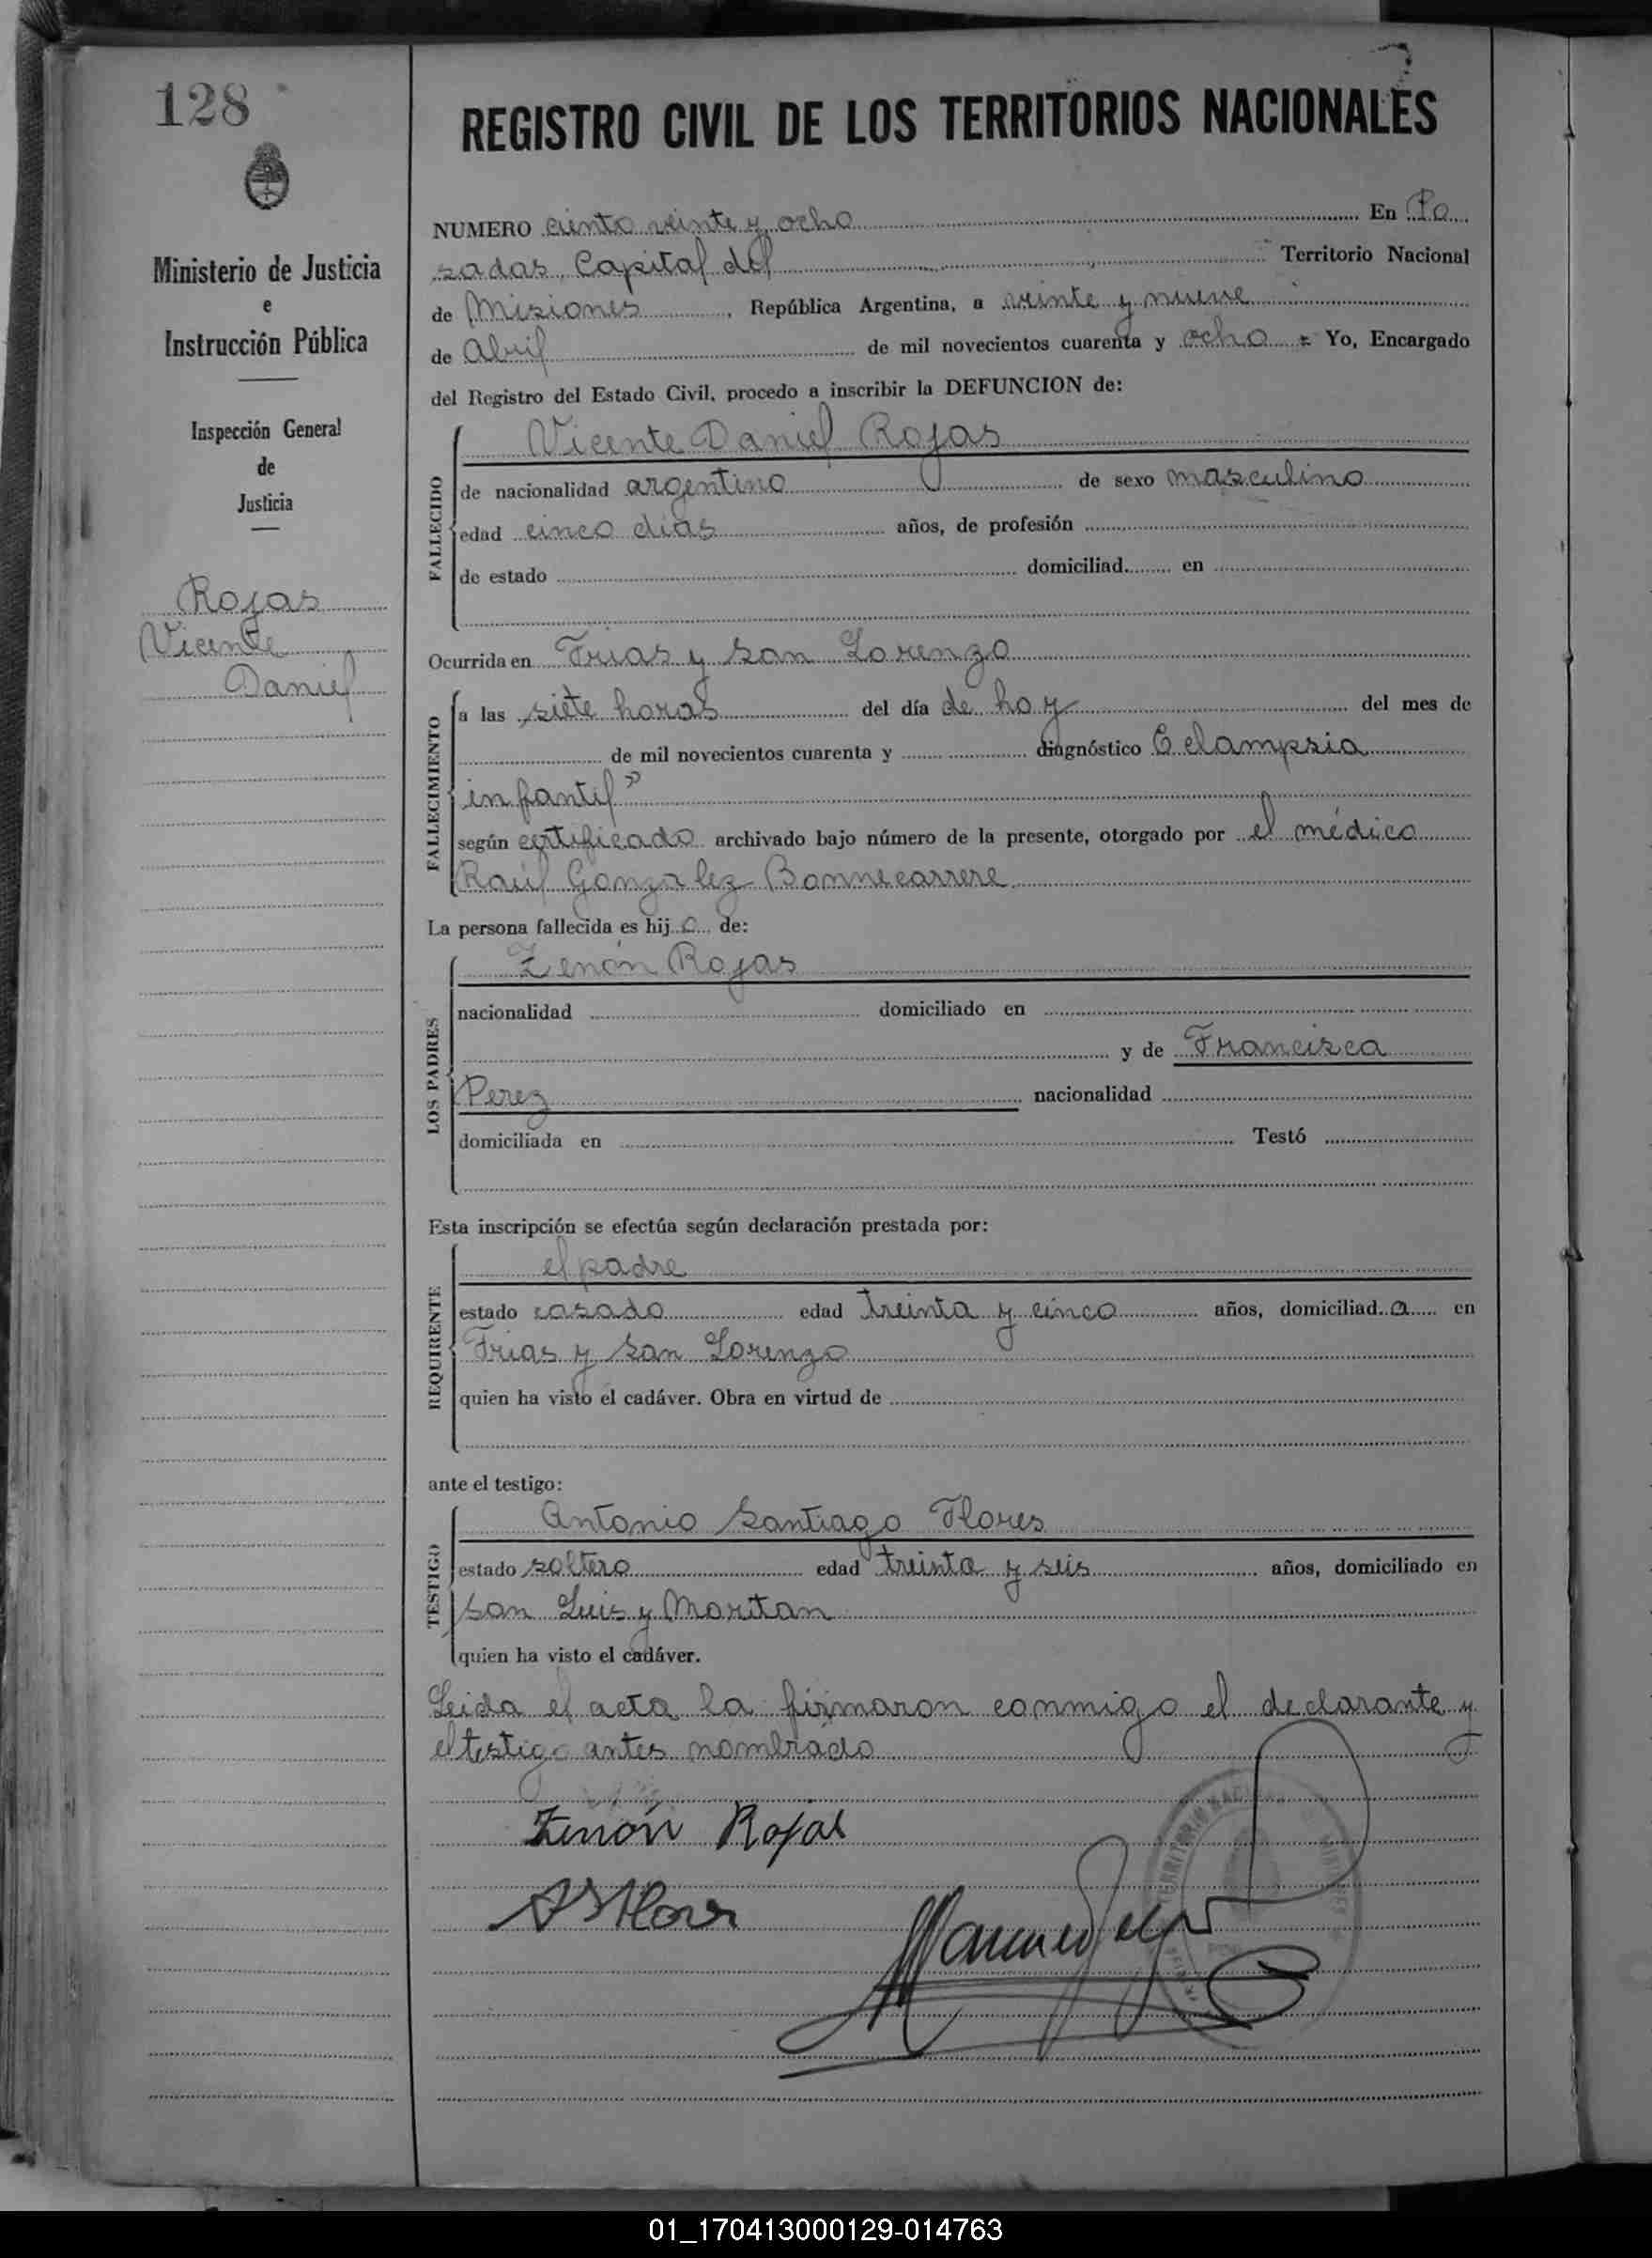 128
Ministerio de Justicia
e
Instrucción Pública
Inspección General
de
Justicia
Rojas
Vicente
Daniel
REGISTRO CIVIL DE LOS TERRITORIOS NACIONALES
NUMERO ciento veinte y ocho En Po
sadas, Capital del Territorio Nacional
de Misiones, República Argentina, a veinte y nueve
de Abril de mil novecientos cuarenta y ocho = Yo, Encargado
del Registro del Estado Civil, procedo a inscribir la DEFUNCION de:
FALLECIDO
Vicente Daniel Rojas
de nacionalidad argentino de sexo masculino
edad cinco días años, de profesión
de estado domiciliad en
Ocurrida en Frias y San Lorenzo
FALLECIMIENTO
a las siete horas del día de hoy del mes de
de mil novecientos cuarenta y diagnóstico Eclampsia
infantil"
según certificado archivado bajo número de la presente, otorgado por el médico
Raúl Gonzalez Bonnecarrere
La persona fallecida es hijo de:
LOS PADRES
Zenón Rojas
nacionalidad domiciliado en
y de Francisca
Perez nacionalidad
domiciliada en Testó
Esta inscripción se efectúa según declaración prestada por:
REQUIRENTE
el padre
estado casado edad treinta y cinco años, domiciliado en
Frias y San Lorenzo
quien ha visto el cadáver. Obra en virtud de
ante el testigo:
TESTIGO
Antonio Santiago Flores
estado soltero edad treinta y seis años, domiciliado en
San Luis y Moritan
quien ha visto el cadáver.
Leida el acta la firmaron conmigo el declarante y
el testigo antes nombrado
Zenón Rojas
ASFlores
01_170413000129-014763